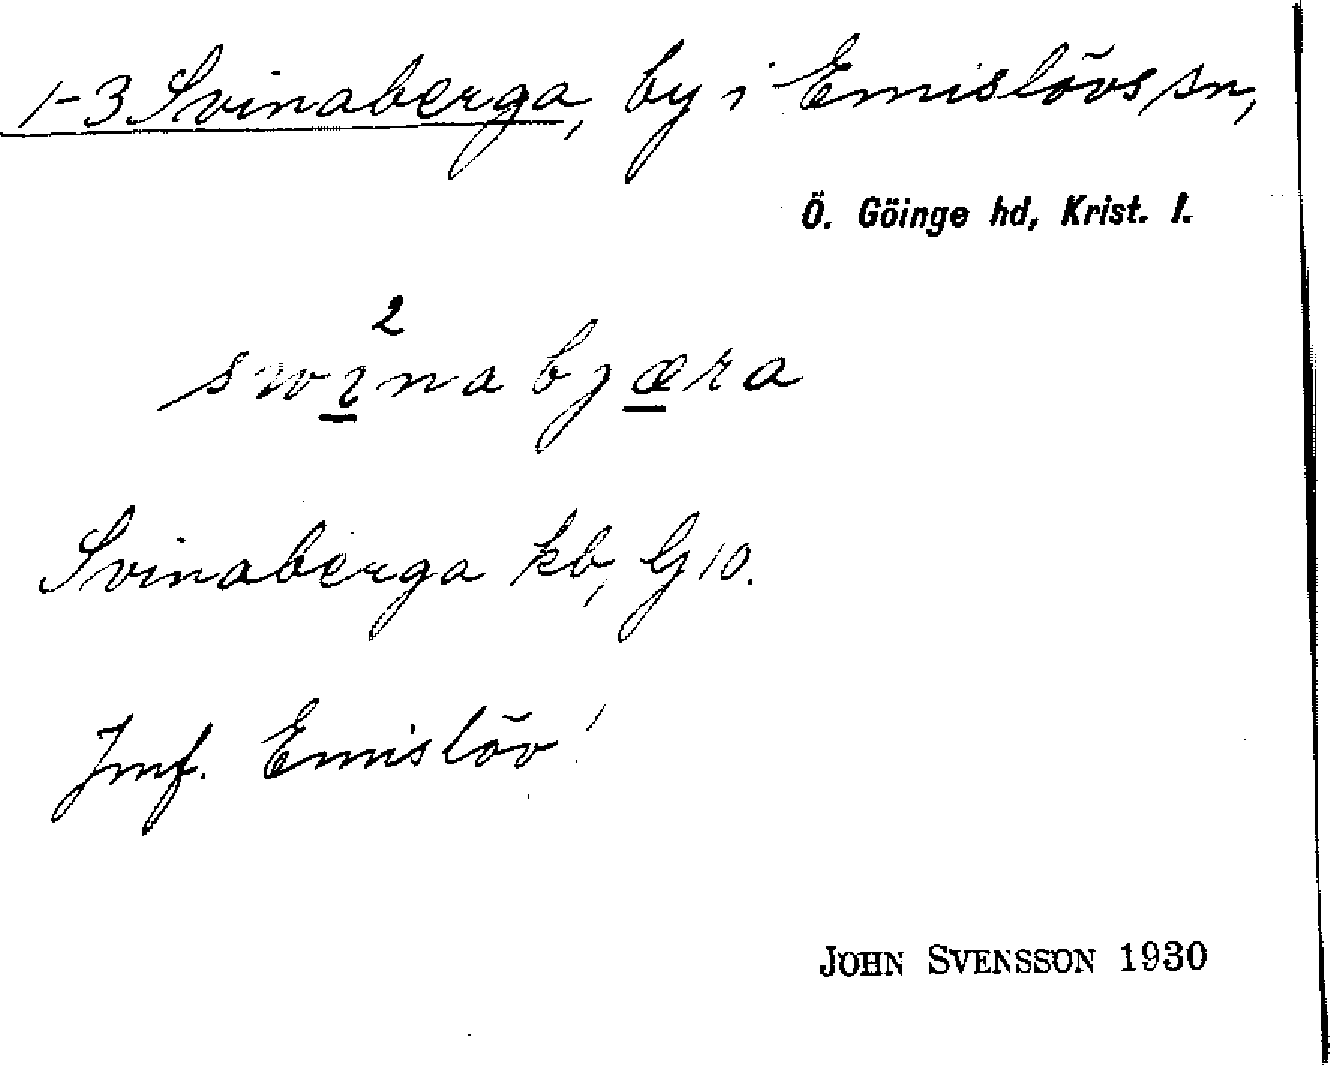 1-3 Svinaberga, by i Emislövs sn,
Ö. Göinge hd, Krist. l.
2
swinabjæra
Svinaberga kb, G 10.
Jmf. Emislöv!
JOHN SVENSSON 1930